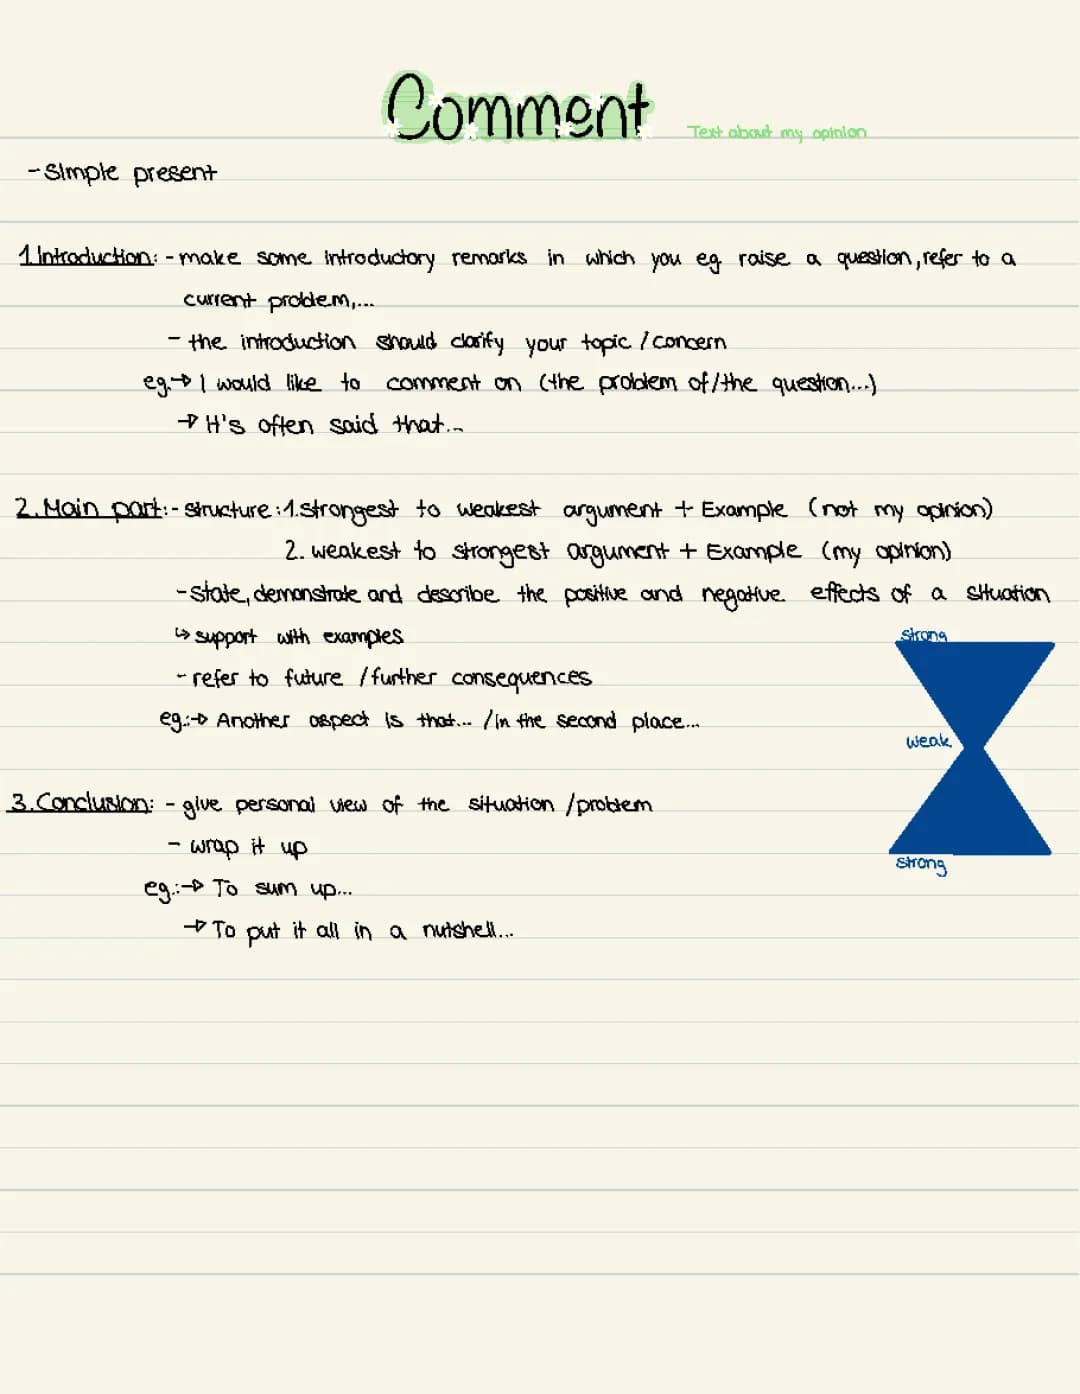 Comment
Text about my opinion
- Simple present
1. Introduction: - make some introductory remarks in which you eg raise a question, refer to a
current problem,...
- the introduction should clarify your topic / concern
eg.→ I would like to comment on (the problem of/the question...)
→ It's often said that...
2. Main part: - structure: 1. strongest to weakest argument + Example (not my opinion)
2. weakest to strongest argument + Example (my opinion)
- state, demonstrate and describe the positive and negative effects of a situation
↳ support with examples
strong
- refer to future / further consequences
eg.:→ Another aspect is that... / in the second place...
weak
3. Conclusion: - give personal view of the situation / problem
- wrap it up
strong
eg.:→ To sum up...
→ To put it all in a nutshell...